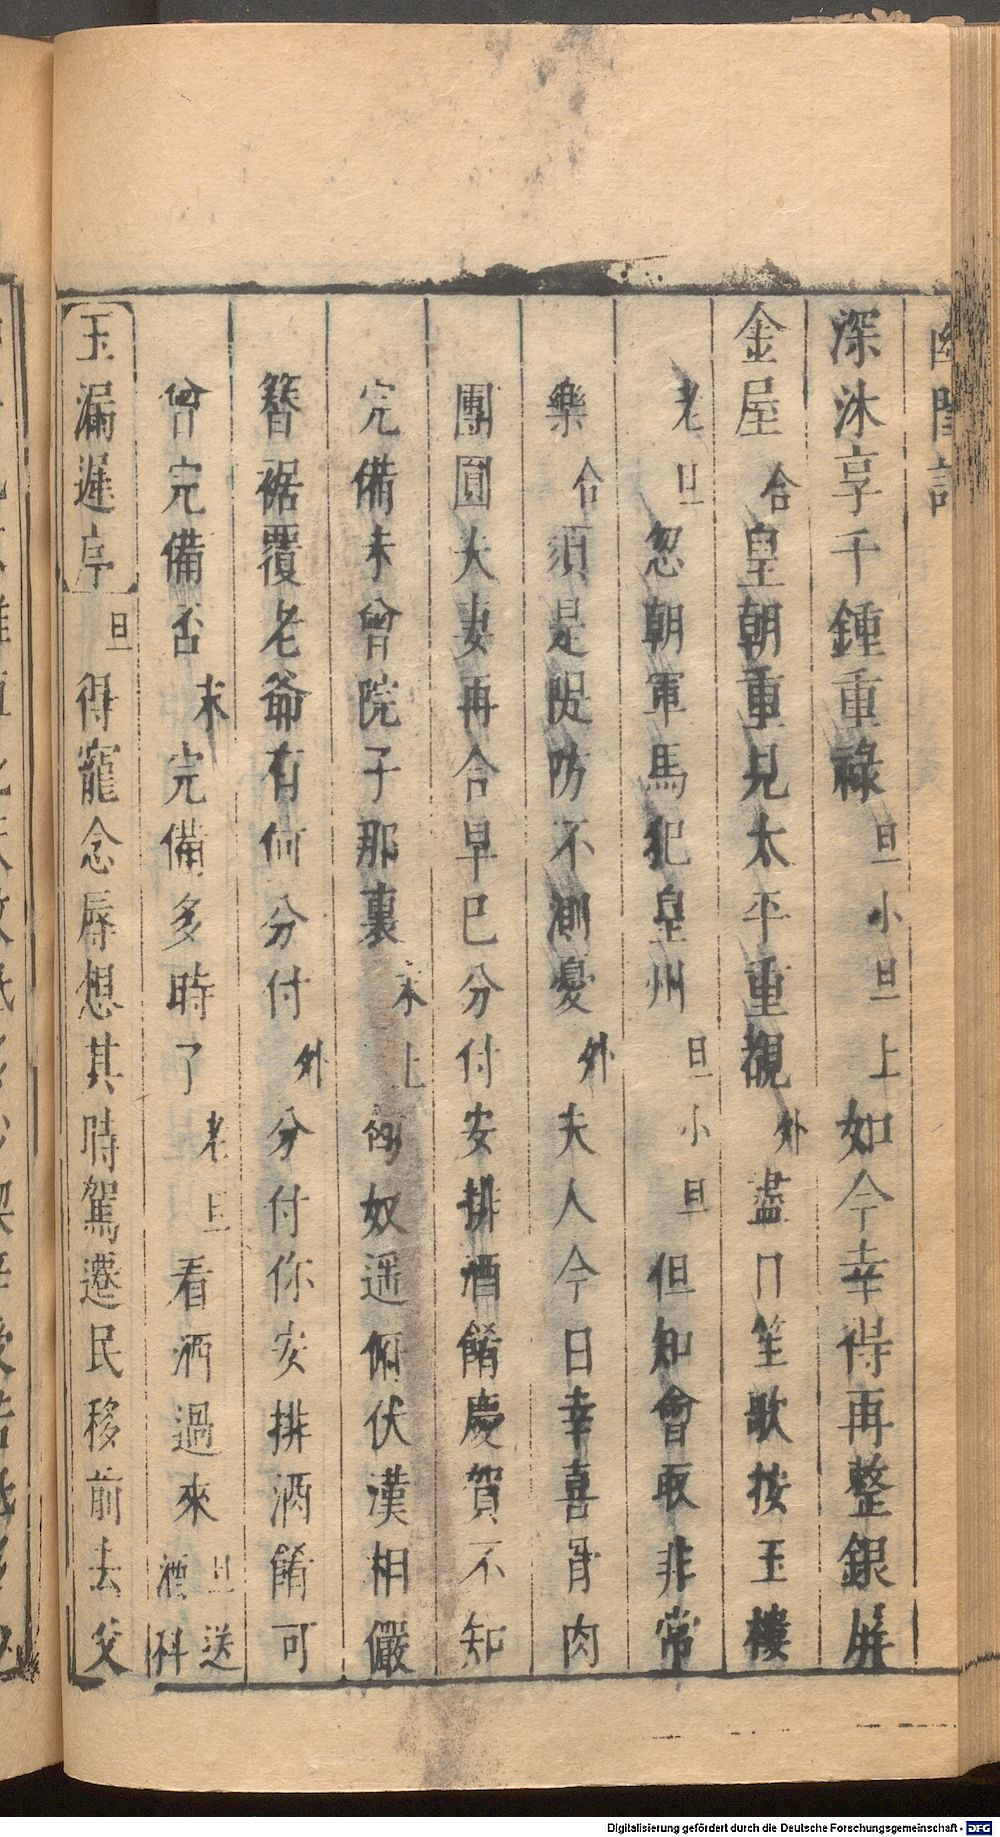 幽閨記
深沐享千鍾重祿旦小旦上如今幸得再整銀屏
金屋合皇朝重見太平重覩外盪門笙歌按玉樓
老旦忽朝軍馬犯皇州旦小旦但知會取非常
樂合須是隄防不測憂外夫人今日幸喜骨肉
團圓夫妻再合早已分付安排酒餚慶賀不知
完備未曾院子那裏末上奴遥俯伏漢相儼
簪裾覆老爺有何分付外分付你安排酒餚可
曾完備否末完備多時了老旦看酒過來旦送酒科
玉漏遲序旦得寵念辱想其時駕遷民移前去父
Digitalisierung gefördert durch die Deutsche Forschungsgemeinschaft - DFG